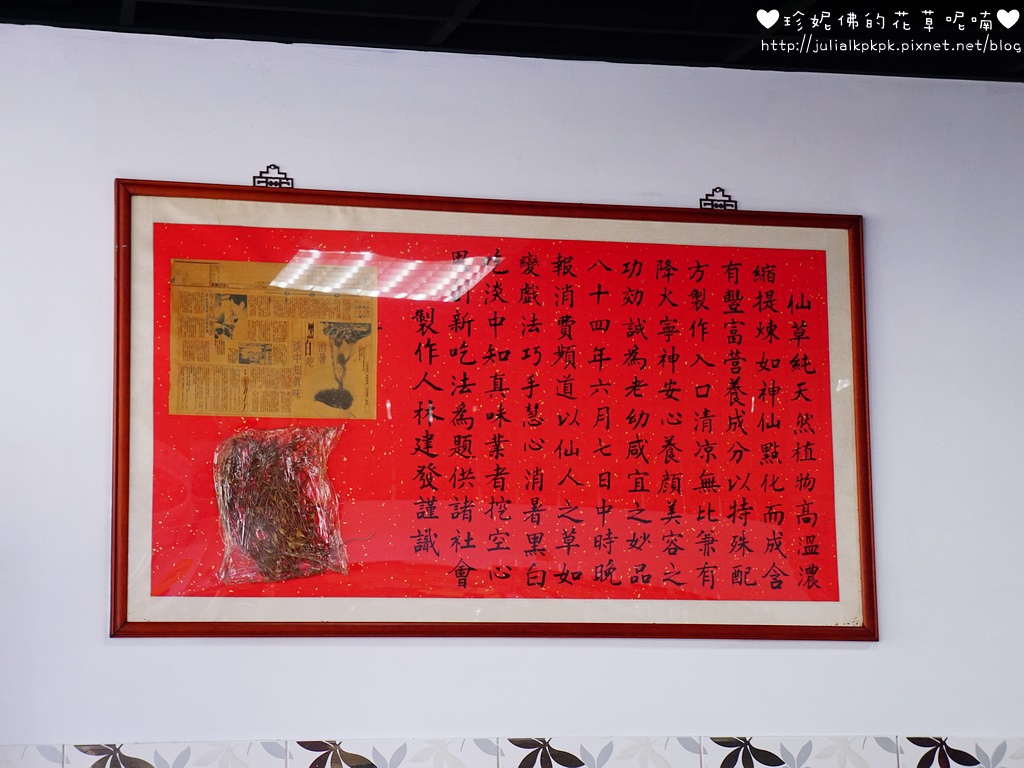 ♥珍妮佛的花草呢喃♥
http://julialkpkpk.pixnet.net/blog
仙草純天然植物高溫濃
縮提煉如神仙點化而成含
有豐富營養成分以特殊配
方製作入口清凉無比兼有
降火寧神安心養顏美容之
功効誠為老幼咸宜之妙品
八十四年六月七日中時晚
報消費頻道以仙人之草如
變戲法巧手慧心消暑黑白
吃淡中知真味業者挖空心
思創新吃法為題供諸社會
製作人林建發謹識